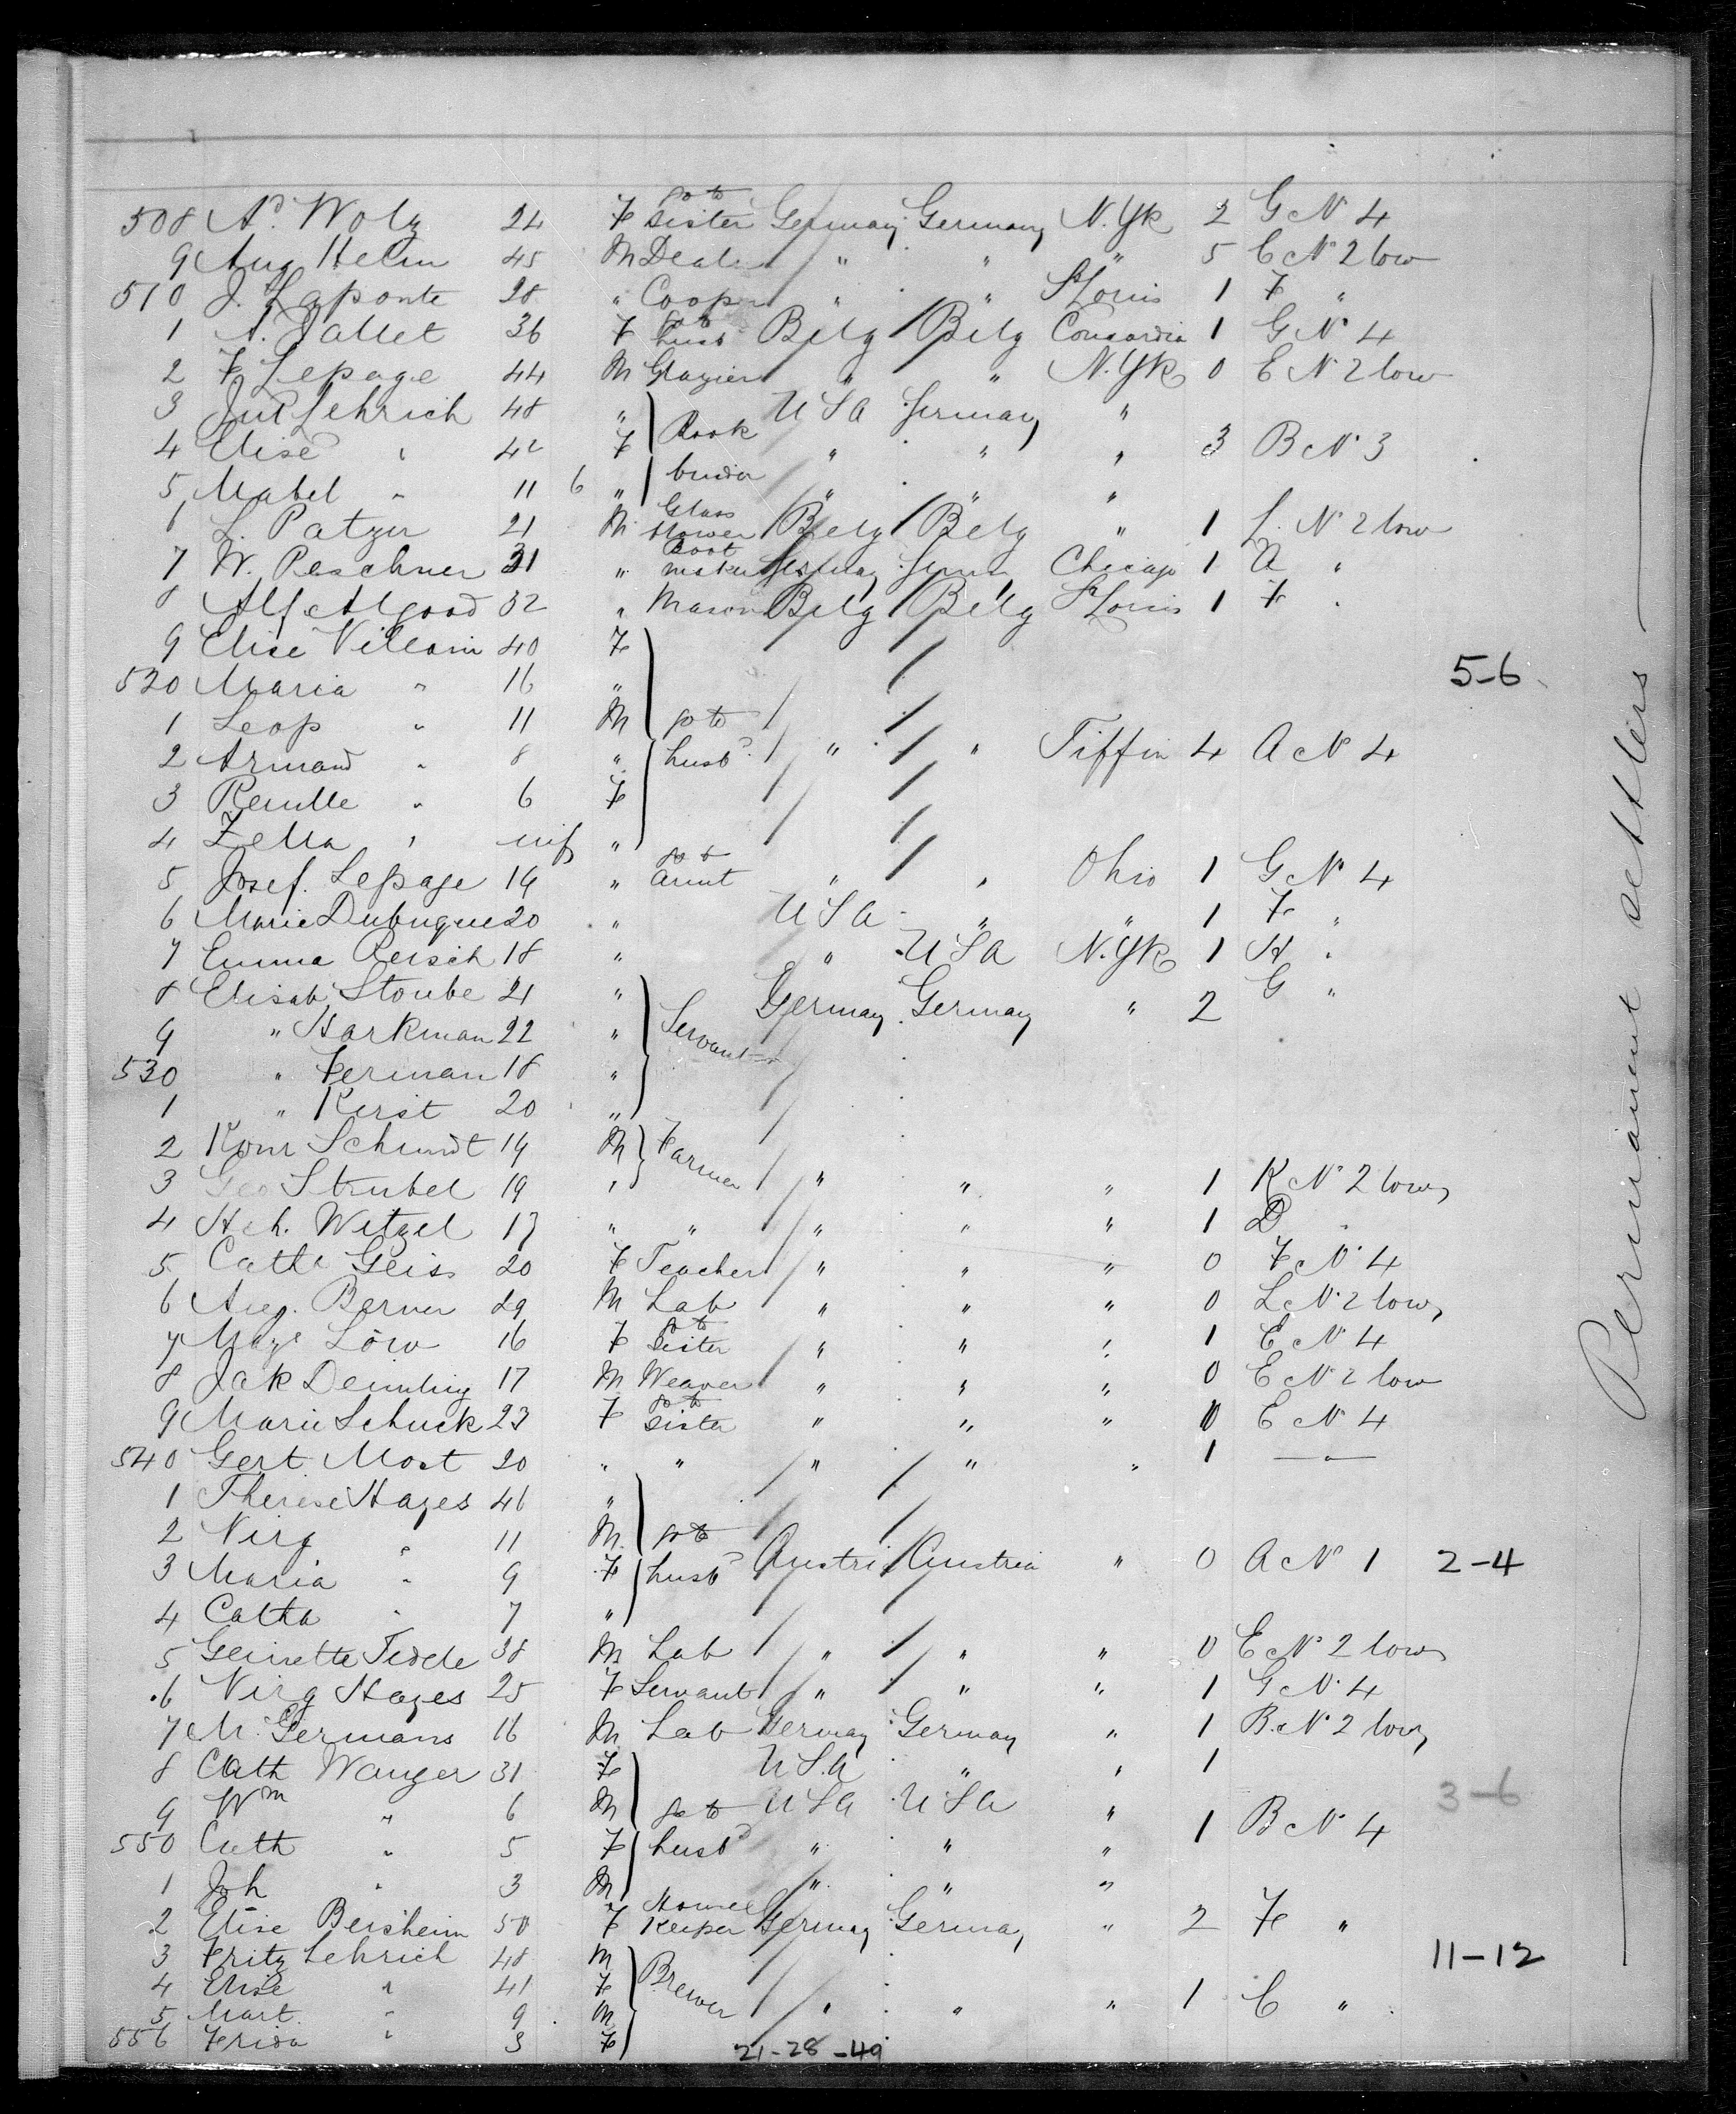 508 Ad. Wolz 24 F go to Sister Germany Germany N.Yk 2 G N 4
9 Aug Helm 45 M Dealer " " " 5 C N 2 low
510 J. Laponte 28 " Cooper " " St Louis 1 F "
1 A. Jallet 36 F go to husb Belg Belg Concordia 1 G N 4
2 F Lepage 44 M Glazier " " N.Yk 0 E N 2 low
3 Jul Lehrich 48 " USA Germany "
4 Elise " 42 F Book binder " " " 3 B N 3
5 Mabel " 11 6 " " " "
6 L. Patzer 21 M Glass blower Belg Belg " 1 L. N 2 low
7 W. Peschner 31 " Boot maker Germany Germ Chicago 1 A "
8 Alf. Algood 32 " Mason Belg Belg St Louis 1 F "
9 Elise Villain 40 F
520 Maria " 16 " 5-6
1 Leop " 11 M go to
2 Armand " 8 " husbd " " Tiffin 4 A N 4
3 " 6 F
4 Zella " inf "
5 Josef. Lepage 14 " go to Aunt " " Ohio 1 G N 4
6 Marie Dubuque 20 " USA " " 1 F "
7 Emma Persch 18 " " USA N.Yk 1 H "
8 Elisab Stoube 21 " Germany Germany " 2 G "
9 " Harkman 22 " Servants
530 " Ferman 18 "
1 " Kerst 20 "
2 Konr Schmidt 14 M Farmer
3 Geo Strubel 19 " " " " 1 K N 2 low
4 Hch. Wetzel 17 " " " " " 1 D "
5 Cathe Geis 20 F Teacher " " " 0 F N 4
6 Aug. Berner 29 M Lab " " " 0 L N 2 low
7 Löw 16 F go to Sister " " " 1 E N 4
8 Jak Deimling 17 M Weaver " " " 0 E N 2 low
9 Marie Schuck 23 F go to Sister " " " 0 E N 4
540 Gert Most 20 " " " " " 1 — " —
1 Therese Hazes 46 "
2 Virg " 11 M go to
3 Maria " 9 F husbd Austri Austria " 0 A N 1 2-4
4 Catha " 7 "
5 Tedde 38 M Lab " " " 0 E N 2 low
6 Virg Hazes 25 F Servant " " " 1 G N 4
7 M. Germans 16 M Lab Germany Germany " 1 B. N 2 low
8 Cath Wanger 31 F USA " " 1
9 Wm " 6 M go to USA USA " 1 B N 4 3-6
550 Cath " 5 F husbd " " "
1 Joh " 3 M " " "
2 Elise Bersheim 50 F House Keeper Germany Germany " 2 F "
3 Fritz Lehrich 48 M 11-12
4 Elise " 41 F Brewer " " " 1 C "
5 Mart. " 9 M
556 Frida " 3 F
21-28-49
Permanent settlers